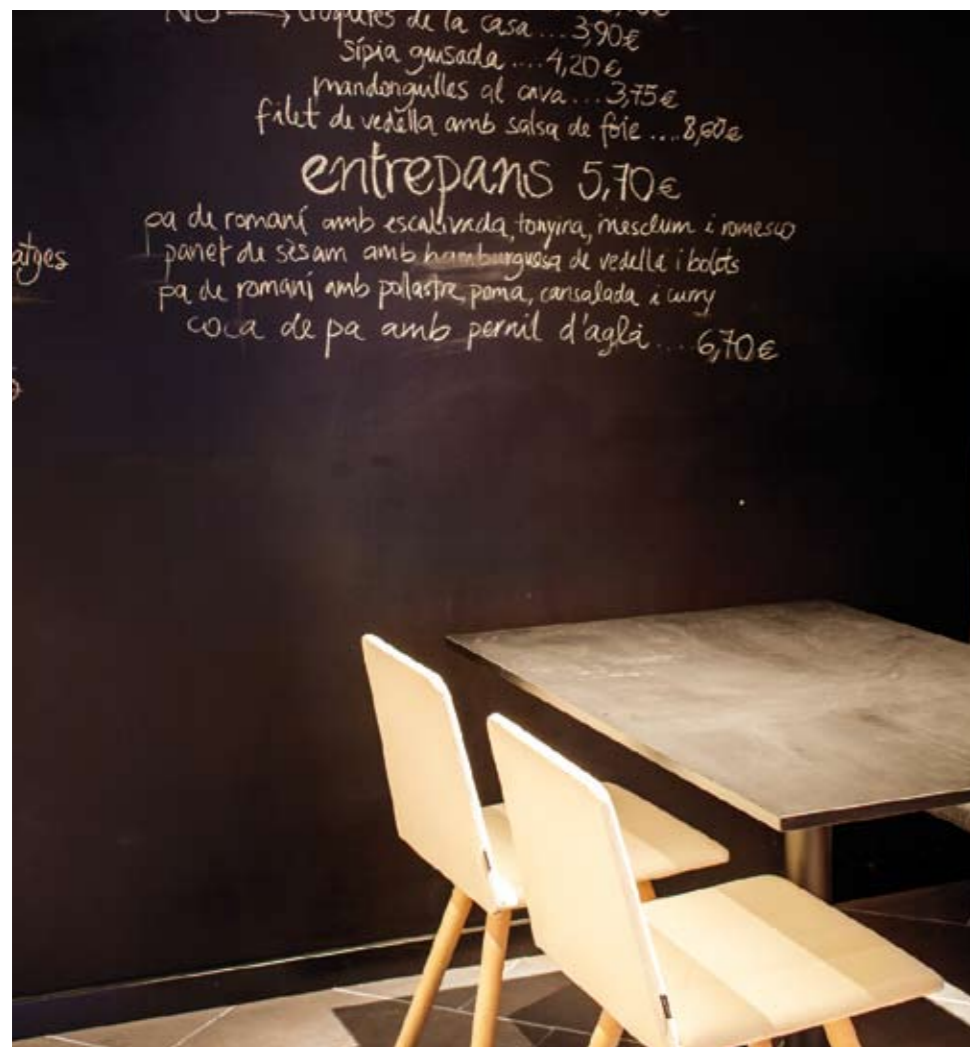 NO → croquetes de la casa ... 3,90€
sípia guisada .... 4,20€
mandonguilles al cava ... 3,75€
filet de vedella amb salsa de foie ....
entrepans 5,70€
pa de romaní amb escalivada, tonyina, mesclum i romesco
panet de sèsam amb hamburguesa de vedella i bolets
pa de romaní amb pollastre, poma, cansalada i curry
coca de pa amb pernil d'aglà .... 6,70€
atges